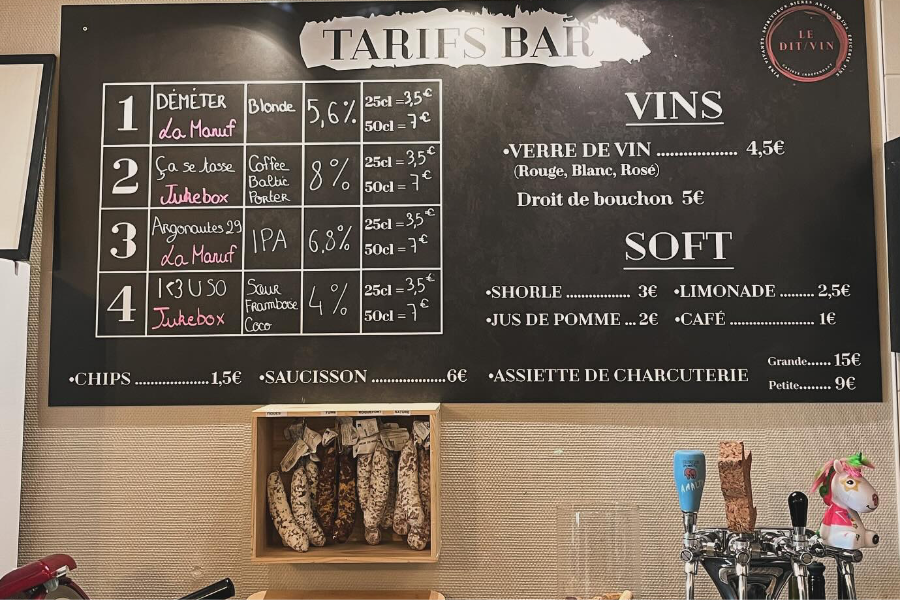 TARIFS BAR
LE
DIT/VIN
1 DÉMÉTER Blonde 5,6% 25cl = 3,5€
La Manuf 50cl = 7€
2 Ça se tasse Coffee 8% 25cl = 3,5€
Jukebox Baltic 50cl = 7€
Porter
3 Argonautes 29 IPA 6,8% 25cl = 3,5€
La Manuf 50cl = 7€
4 I<3 U SO Sour 4% 25cl = 3,5€
Jukebox Framboise 50cl = 7€
Coco
VINS
•VERRE DE VIN .................. 4,5€
(Rouge, Blanc, Rosé)
Droit de bouchon 5€
SOFT
•SHORLE ............... 3€ •LIMONADE ........ 2,5€
•JUS DE POMME ... 2€ •CAFÉ .................... 1€
•CHIPS ..................1,5€ •SAUCISSON ..................6€ •ASSIETTE DE CHARCUTERIE
Grande...... 15€
Petite........ 9€